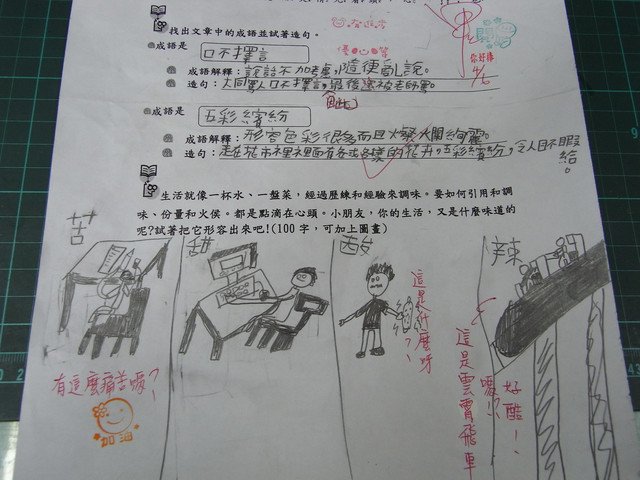 找出文章中的成語並試著造句。
成語是 口不擇言
優
成語解釋：說話不加考慮，隨便亂說。
你好棒
造句：大同罵人口不擇言，最後還被老師罵。
因此
成語是 五彩繽紛
成語解釋：形容色彩很多而且火燦爛絢麗。
造句：走在花市裡裡面有各式各樣的花卉，五彩繽紛，令人目不暇給。
生活就像一杯水、一盤菜，經過歷練和經驗來調味。要如何引用和調
味、份量和火侯。都是點滴在心頭。小朋友，你的生活，又是什麼味道的
呢?試著把它形容出來吧!(100 字，可加上圖畫)
苦
甜
酸
辣
這是什麼呀？
有這麼痛苦嗎？
加油
這是雲霄飛車
嗎？
好酷！